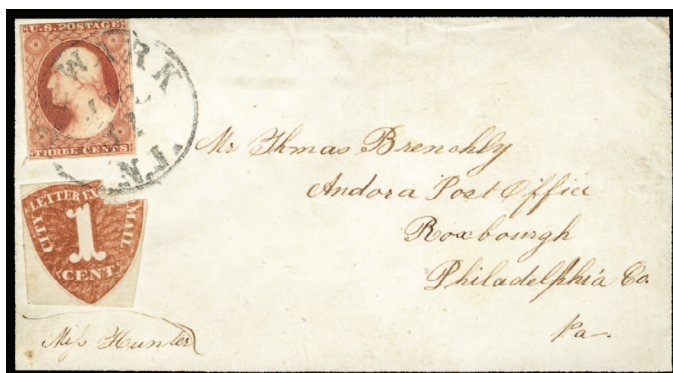 U.S. POSTAGE
THREE CENTS
WARK
N.J.
CITY LETTER EX MAIL
1
CENT
Mr Thmas Brenchly
Andora Post Office
Roxbourgh
Philadelphia Co.
Pa.
Miss Hunter